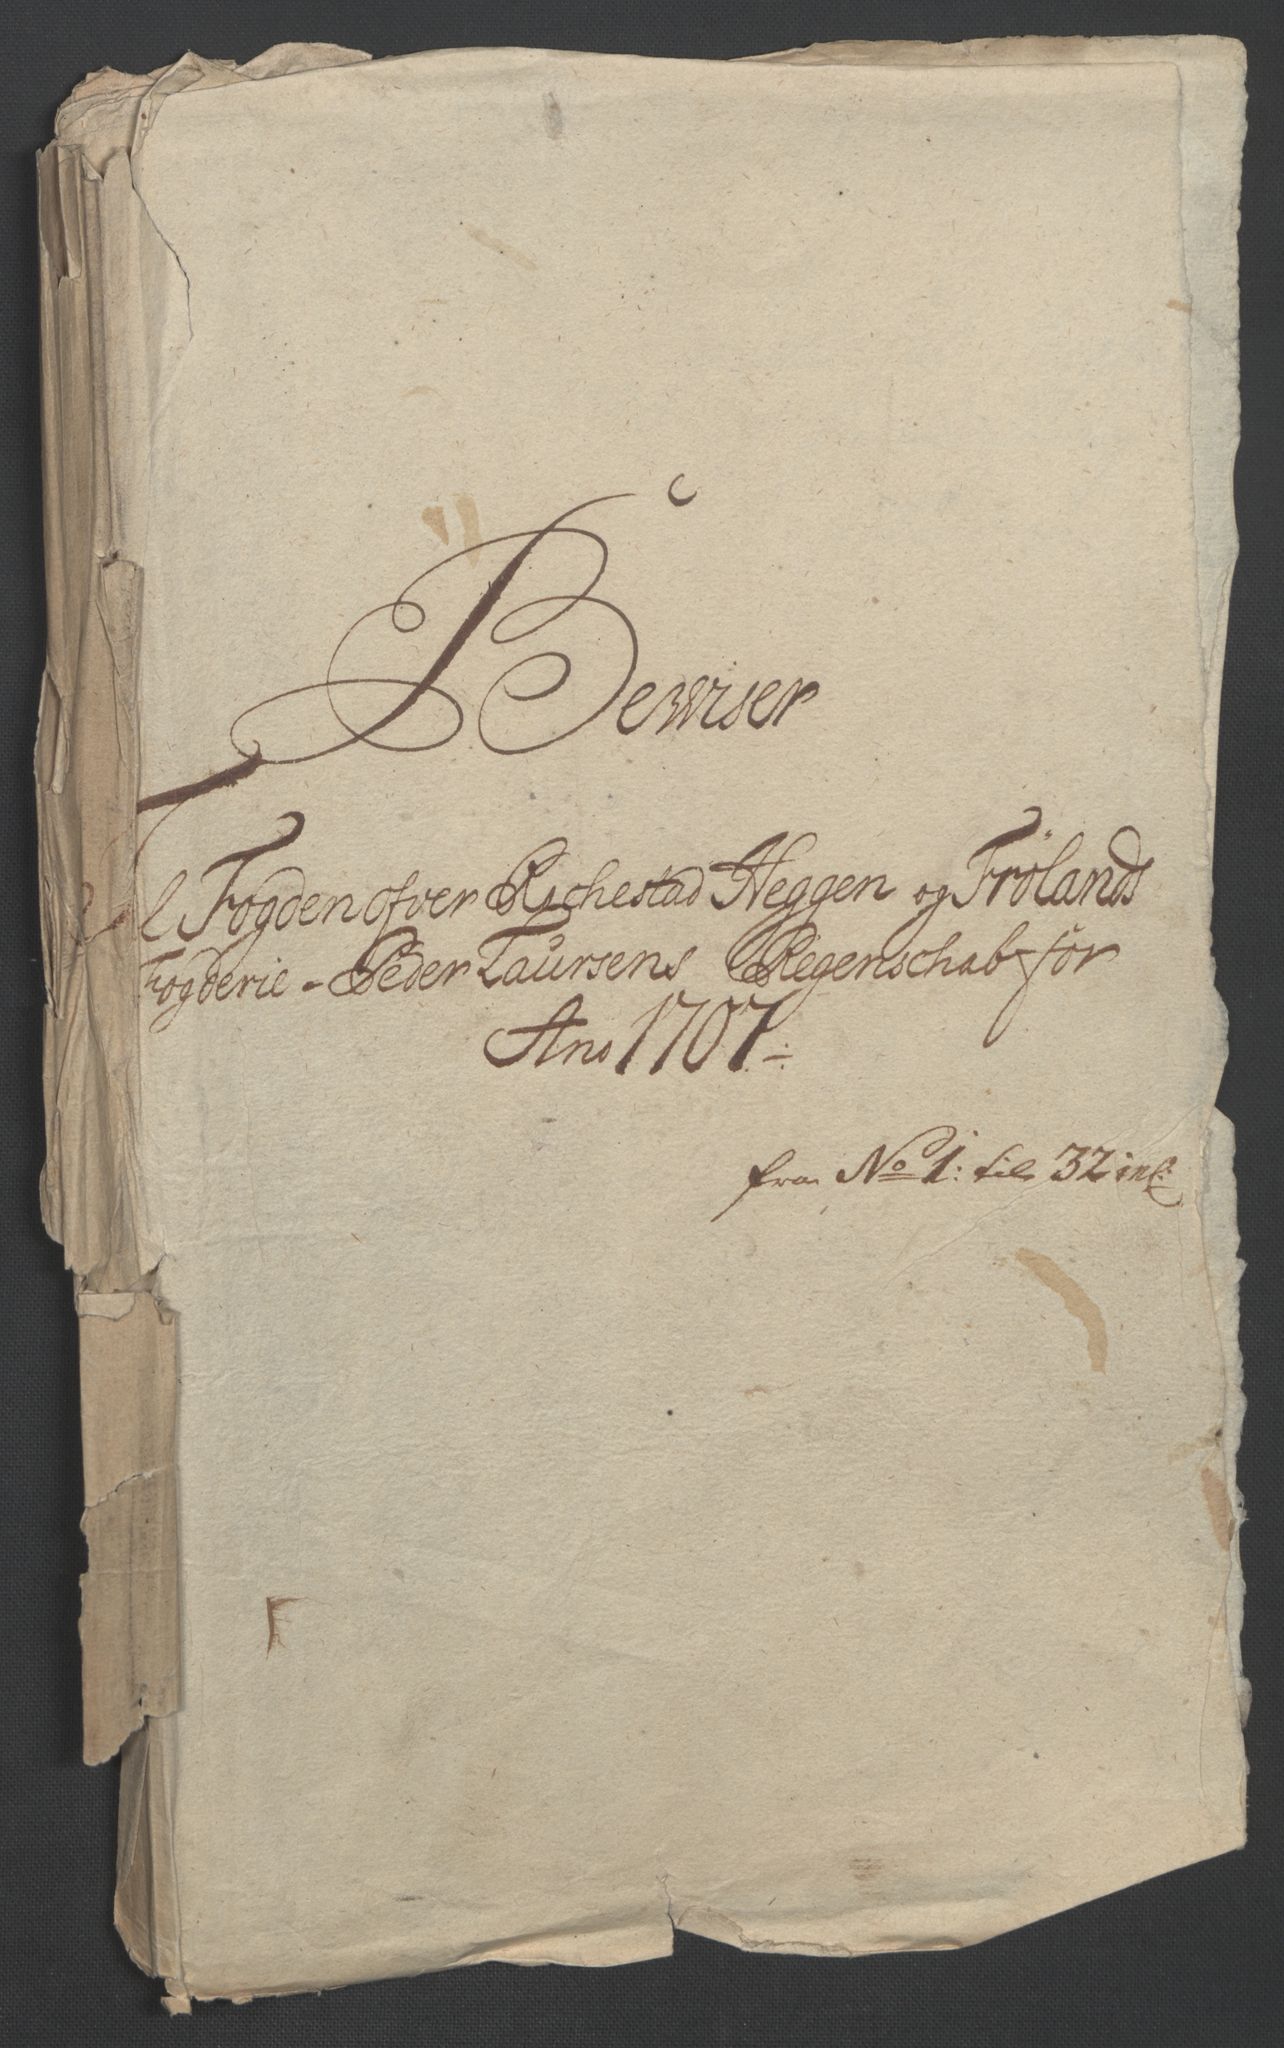 Bewiser
Til Fogden ofver Rachestad Heggen og Frölands
Fogderie - Peder Laursens Regenschab för
Ano 1707:
fra No 1: til 32 incl: